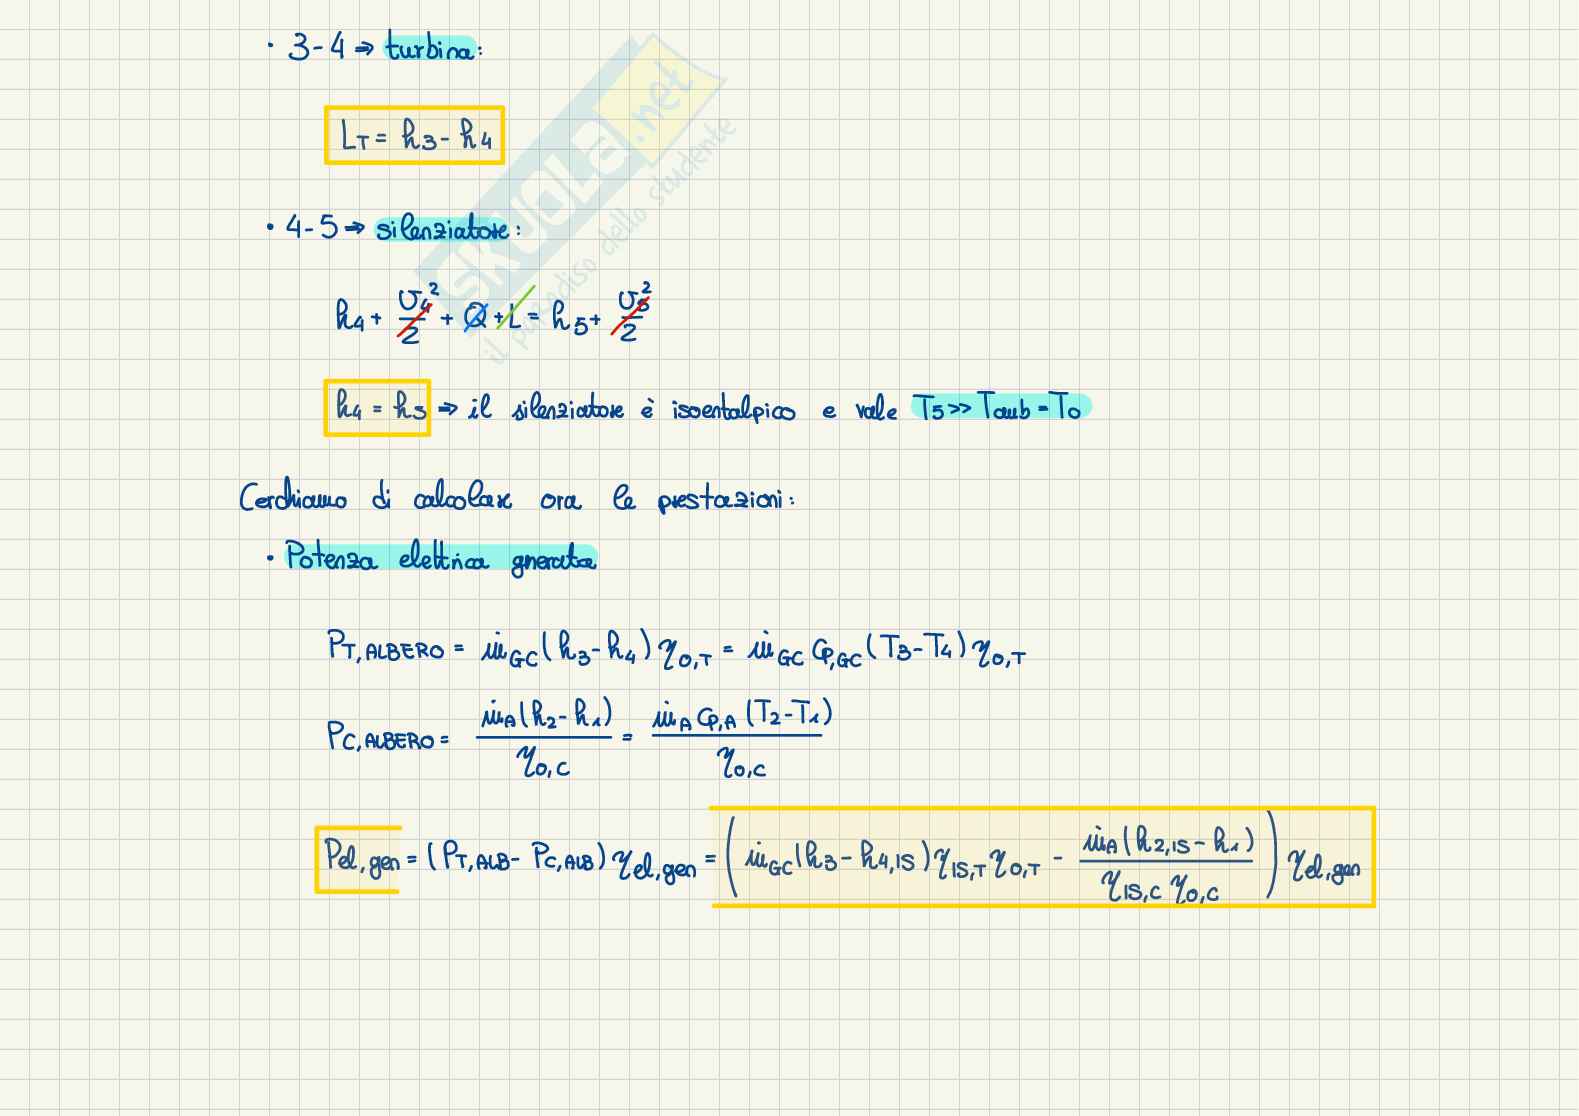 • 3-4 ⇒ turbina:
L_T = h_3 - h_4
• 4-5 ⇒ silenziatore:
h_4 + v_4^2/2 + Q + L = h_5 + v_5^2/2
h_4 = h_5 ⇒ il silenziatore è isoentalpico e vale T_5 >> T_amb = T_0
Cerchiamo di calcolare ora le prestazioni:
• Potenza elettrica generata
P_T,ALBERO = ṁ_GC (h_3 - h_4) η_o,T = ṁ_GC c_p,GC (T_3 - T_4) η_o,T
P_C,ALBERO = ṁ_A (h_2 - h_1) / η_o,C = ṁ_A c_p,A (T_2 - T_1) / η_o,C
P_el,gen = (P_T,ALB - P_C,ALB) η_el,gen = ( ṁ_GC (h_3 - h_4,IS) η_IS,T η_o,T - ṁ_A (h_2,IS - h_1) / η_IS,C η_o,C ) η_el,gen
SKUOLA.net
il paradiso dello studente